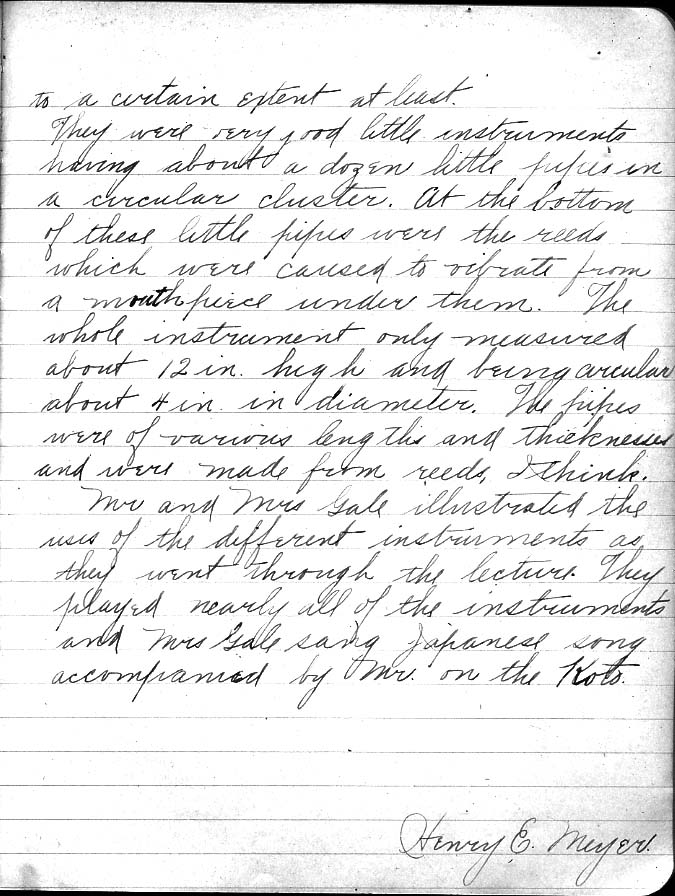 to a certain extent at least.
They were very good little instruments
having about a dozen little pipes in
a circular cluster. At the bottom
of these little pipes were the reeds
which were caused to vibrate from
a mouthpiece under them. The
whole instrument only measured
about 12 in. high and being circular
about 4 in in diameter. The pipes
were of various lengths and thicknesses
and were made from reeds, I think.
Mr and Mrs Gale illustrated the
uses of the different instruments as
they went through the lecture. They
played nearly all of the instruments
and Mrs Gale sang Japanese song
accompanied by Mr. on the Koto.
Henry E. Meyer.